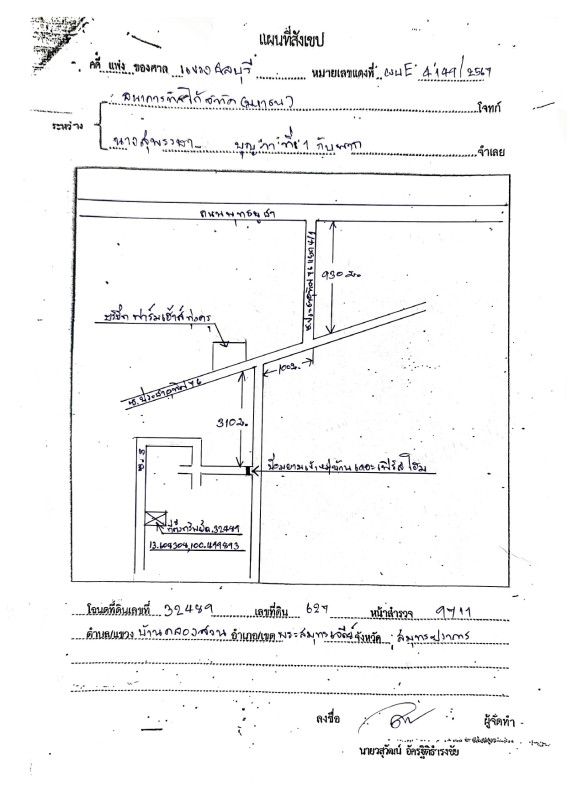 แผนที่สังเขป
คดี แพ่ง ของศาล แขวงชลบุรี หมายเลขแดงที่ ผบE 4149/2567
ธนาคารทิสโก้ จำกัด (มหาชน) โจทก์
ระหว่าง
นางสุพรรษา ที่ 1 กับพวก จำเลย
ถนนพุทธบูชา
ซ.ประชาอุทิศ 76 แยก 4/1
930 ม.
บริษัท ฟาร์มเฮ้าส์ ทุ่งครุ
100 ม.
ซ.ประชาอุทิศ 76
310 ม.
ป้อมยามเข้าหมู่บ้าน เดอะเฟิร์ส โฮม
ซ.5
ที่ตั้งทรัพย์ฉ.32489
โฉนดที่ดินเลขที่ 32489 เลขที่ดิน 627 หน้าสำรวจ 9711
ตำบล/แขวง บ้านคลองสวน อำเภอ/เขต พระสมุทรเจดีย์ จังหวัด สมุทรปราการ
ลงชื่อ ผู้จัดทำ
นายวสุวัฒน์ อัครฐิติธำรงชัย